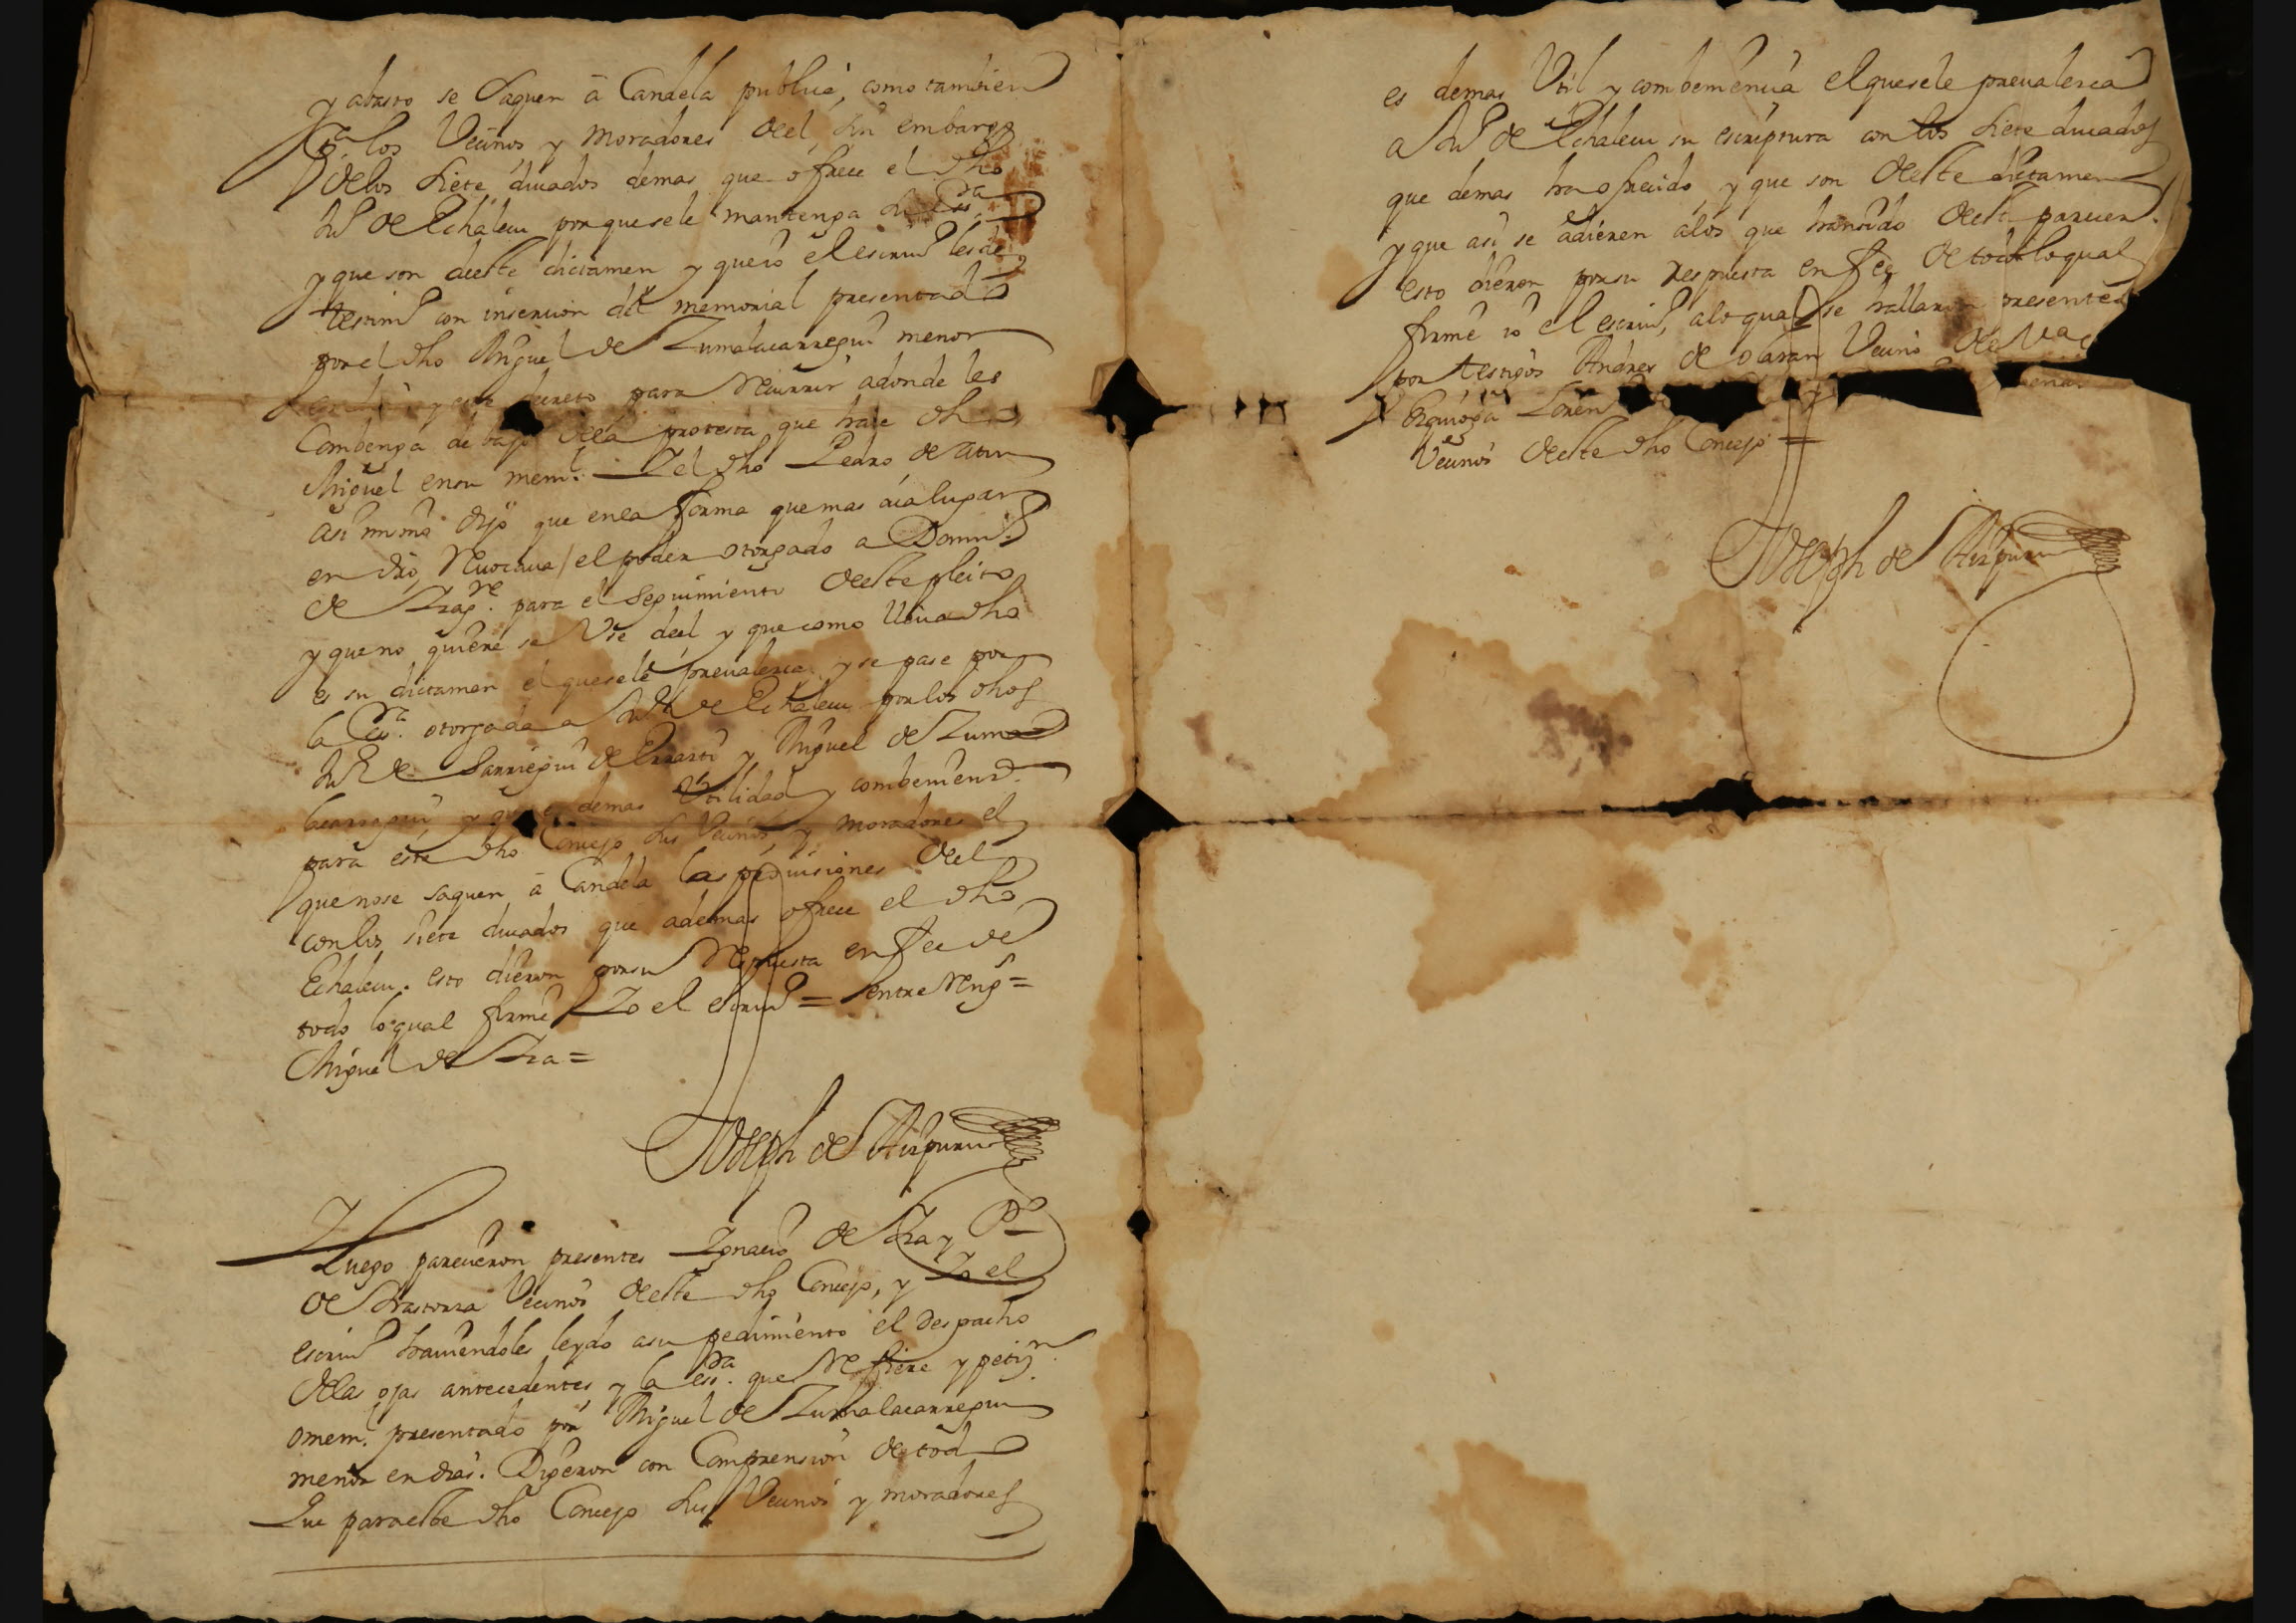 y abasto se saquen â Candela publica, como tambien
pª. los Vecinos y Moradores del, sin embargo
de los siete ducados demas que ofrece el dho
de Echalecu porque se le mantenga su Essª
y que son deste dictamen y que io el escrivº les de
testimº con insercion del memorial presentado
por el dho Miguel de Zumalacarregui menor
y este decreto para recurrir adonde les
Combenga debajo dela protesta que haze dho
Miguel en su mem.l Y el dho Pedro de
asi mismo dijo que en la forma que mas aia lugar
en dro, Revocava el poder otorgado a Domin.º
de para el seguimiento deste pleito
y que no quiere se Vse del y que como lleva dho
es su dictamen el que se le prevalezca y se pase por
la Essª. otorgada a de Echalecu por los dhos
de Sarriegui de y Miguel de Zuma
lacarregui, y que es demas Vtilidad y combeniencª.
para este dho Concejo sus Vecinos, y moradores el
que no se saquen â Candela las provisiones del
con los siete ducados que ademas ofrece el dho
Echalecu. esto dieron por su Respuesta en fee de
todo lo qual firmé Yo el escrivº = entre Rengs =
Miguel de =
Joseph de Aizpuru
Luego parecieron presentes Ygnacio de y Pº
de Vecinos deste dho Concejo, y Yo el
escrivº haviendoles leydo a su pedimiento el despacho
delas ojas antecedentes y la essª. que Refiere y petizn.
o mem.l presentado por Miguel de Zumalacarregui
menor en dias. Digeron con Comprension de todo
Que para este dho Concejo sus Vecinos y moradores
es demas Vtil y combeniencia el que se le prevalezca
a de Echalecu su escriptura con los siete ducados
que demas ha ofrecido, y que son deste dictamen
y que asi se adieren alos que han sido deste parecer.
esto dieron por su Respuesta en fee de todo lo qual
firmé io el escrivº, alo qual se hallaron presentes
por testigos Andres de olaran Vecino de
Ezquioga
Vecinos deste dho Concejo =
Joseph de Aizpuru